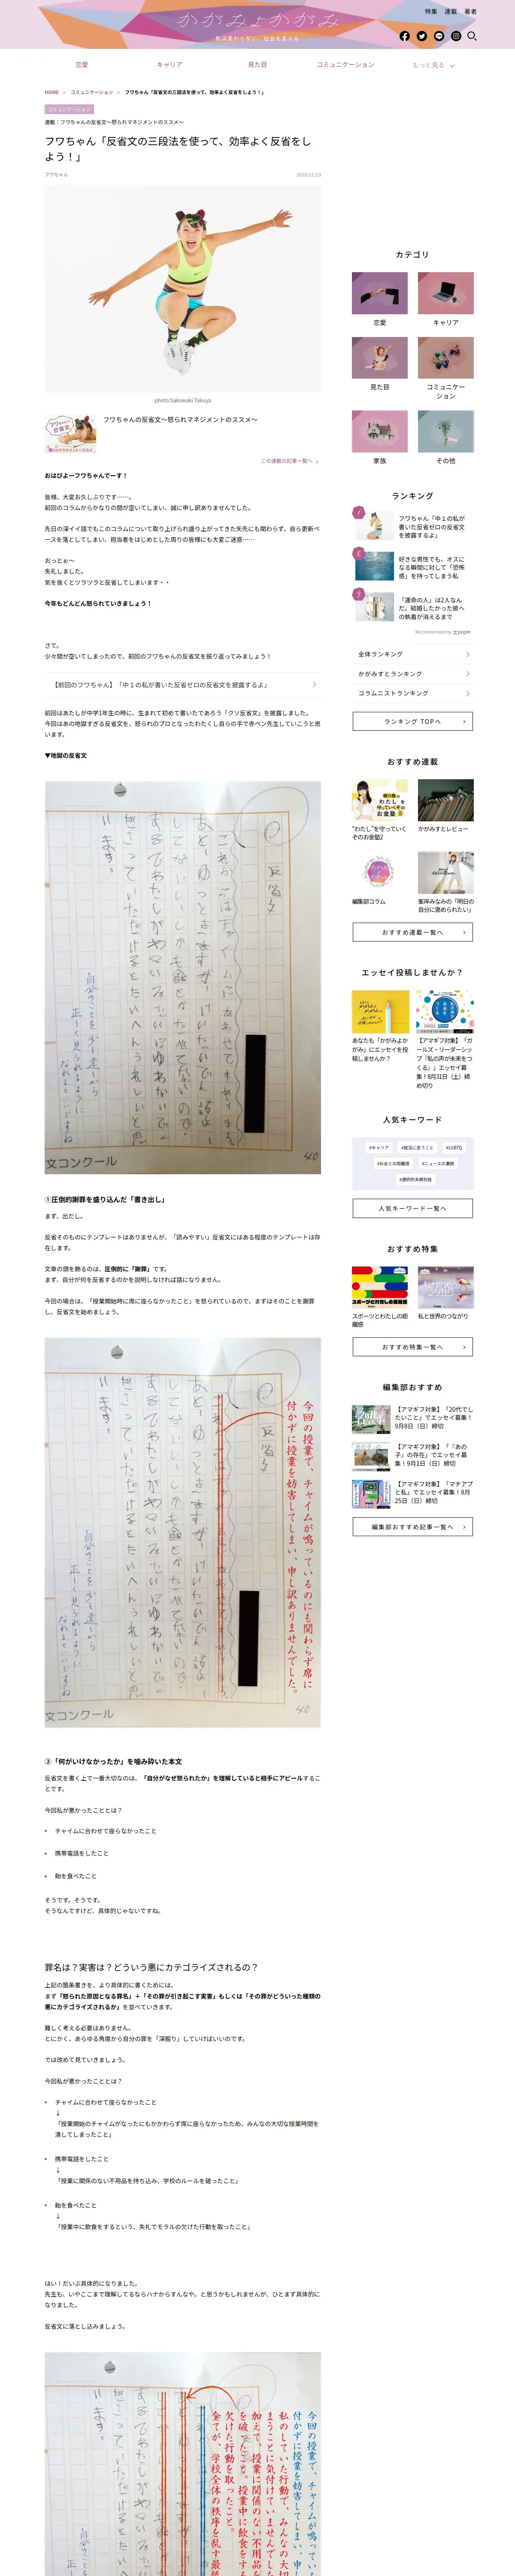 特集 連載 著者
かがみよかがみ
私は変わらない、社会を変える
恋愛 キャリア 見た目 コミュニケーション もっと見る
HOME > コミュニケーション > フワちゃん「反省文の三段法を使って、効率よく反省をしよう！」
コミュニケーション
連載：フワちゃんの反省文〜怒られマネジメントのススメ〜
フワちゃん「反省文の三段法を使って、効率よく反省をし
よう！」
フワちゃん
2019/11/13
photo:Sakawaki Takuya
フワちゃんの反省文〜怒られマネジメントのススメ〜
この連載の記事一覧へ
おはぴよーフワちゃんでーす！
皆様、大変お久しぶりです……。
前回のコラムからかなりの間が空いてしまい、誠に申し訳ありませんでした。
先日の深イイ話でもこのコラムについて取り上げられ盛り上がってきた矢先にも関わらず、自ら更新ペ
ースを落としてしまい、担当者をはじめとした周りの皆様にも大変ご迷惑……
おっとぉ〜
失礼しました。
気を抜くとツラツラと反省してしまいます・・
今年もどんどん怒られていきましょう！
さて。
少々間が空いてしまったので、前回のフワちゃんの反省文を振り返ってみましょう！
【前回のフワちゃん】「中１の私が書いた反省ゼロの反省文を披露するよ」
前回はあたしが中学1年生の時に、生まれて初めて書いたであろう「クソ反省文」を披露しました。
今回はあの地獄すぎる反省文を、怒られのプロとなったわたくし自らの手で赤ペン先生していこうと思
います。
▼地獄の反省文
反省文
自分のことを少し遠くから
正しく見られるように
なれるといいですね
文コンクール
①圧倒的謝罪を盛り込んだ「書き出し」
まず、出だし。
反省そのものにテンプレートはありませんが、「読みやすい」反省文にはある程度のテンプレートは存
在します。
文章の頭を飾るのは、圧倒的に「謝罪」です。
まず、自分が何を反省するのかを説明しなければ話になりません。
今回の場合は、「授業開始時に席に座らなかったこと」を怒られているので、まずはそのことを謝罪
し、反省文を始めましょう。
今回の授業で、チャイムが鳴っているのにも関わらず席に
付かずに授業を妨害してしまい、申し訳ありませんでした。
反省文
自分のことを少し遠くから
正しく見られるように
なれるといいですね
文コンクール
②「何がいけなかったか」を噛み砕いた本文
反省文を書く上で一番大切なのは、「自分がなぜ怒られたか」を理解していると相手にアピールするこ
とです。
今回私が悪かったこととは？
チャイムに合わせて座らなかったこと
携帯電話をしたこと
飴を食べたこと
そうです。そうです。
そうなんですけど、具体的じゃないですね。
罪名は？実害は？どういう悪にカテゴライズされるの？
上記の箇条書きを、より具体的に書くためには、
まず「怒られた原因となる罪名」＋「その罪が引き起こす実害」もしくは「その罪がどういった種類の
悪にカテゴライズされるか」を並べていきます。
難しく考える必要はありません。
とにかく、あらゆる角度から自分の罪を「深掘り」していけばいいのです。
では改めて見ていきましょう。
今回私が悪かったこととは？
チャイムに合わせて座らなかったこと
↓
「授業開始のチャイムがなったにもかかわらず席に座らなかったため、みんなの大切な授業時間を
潰してしまったこと」
携帯電話をしたこと
↓
「授業に関係のない不用品を持ち込み、学校のルールを破ったこと」
飴を食べたこと
↓
「授業中に飲食をするという、失礼でモラルの欠けた行動を取ったこと」
はい！だいぶ具体的になりました。
先生も、いやここまで理解してるならハナからすんなや。と思うかもしれませんが、ひとまず具体的に
なりました。
反省文に落とし込みましょう。
今回の授業で、チャイムが鳴ってい
付かずに授業を妨害してしまい、申し
私のしていた行動で、みんなの大切
まうことに気付けていませんでした
加えて、授業に関係のない不用品を
を破ったこと。授業中に飲食をする
欠けた行動を取ったこと。
全てが、学校全体の秩序を乱す最低
カテゴリ
恋愛 キャリア
見た目 コミュニケー
ション
家族 その他
ランキング
1
フワちゃん「中１の私が
書いた反省ゼロの反省文
を披露するよ」
2
好きな男性でも、オスに
なる瞬間に対して「恐怖
感」を持ってしまう私
3
「運命の人」は2人なん
だ。結婚したかった彼へ
の執着が消えるまで
Recommended by popIn
全体ランキング
かがみすとランキング
コラムニストランキング
ランキング TOPへ
おすすめ連載
“わたし”を守っていく
そのお金塾2
かがみすとレビュー
編集部コラム
峯岸みなみの「明日の
自分に褒められたい」
おすすめ連載一覧へ
エッセイ投稿しませんか？
あなたも「かがみよか
がみ」にエッセイを投
稿しませんか？
【アマギフ対象】「ガ
ールズ・リーダーシッ
プ『私の声が未来をつ
くる』」エッセイ募
集！8月31日（土）締
め切り
人気キーワード
#キャリア #就活に思うこと #LGBTQ
#お金との距離感 #ニュースの裏側
#選択的夫婦別姓
人気キーワード一覧へ
おすすめ特集
スポーツとわたしの距
離感
私と世界のつながり
おすすめ特集一覧へ
編集部おすすめ
【アマギフ対象】「20代でし
たいこと」でエッセイ募集！
9月8日（日）締切
【アマギフ対象】「『あの
子』の存在」でエッセイ募
集！9月1日（日）締切
【アマギフ対象】「マチアプ
と私」でエッセイ募集！8月
25日（日）締切
編集部おすすめ記事一覧へ